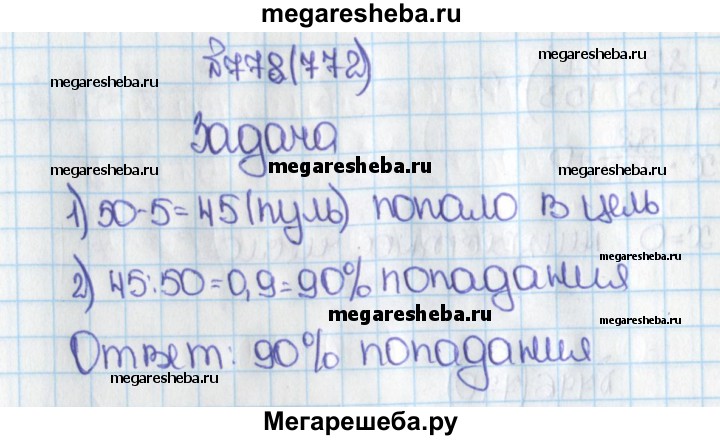 megaresheba.ru
№778(772)
megaresheba.ru
megaresheba.ru
Задача
megaresheba.ru
megaresheba.ru
megaresheba.ru
1) 50-5=45(пуль) попало в цель
megaresheba.ru
2) 45:50=0,9=90% попадания
megaresheba.ru
megaresheba.ru
Ответ: 90% попадания
megaresheba.ru
megaresheba.ru
Мегарешеба.ру